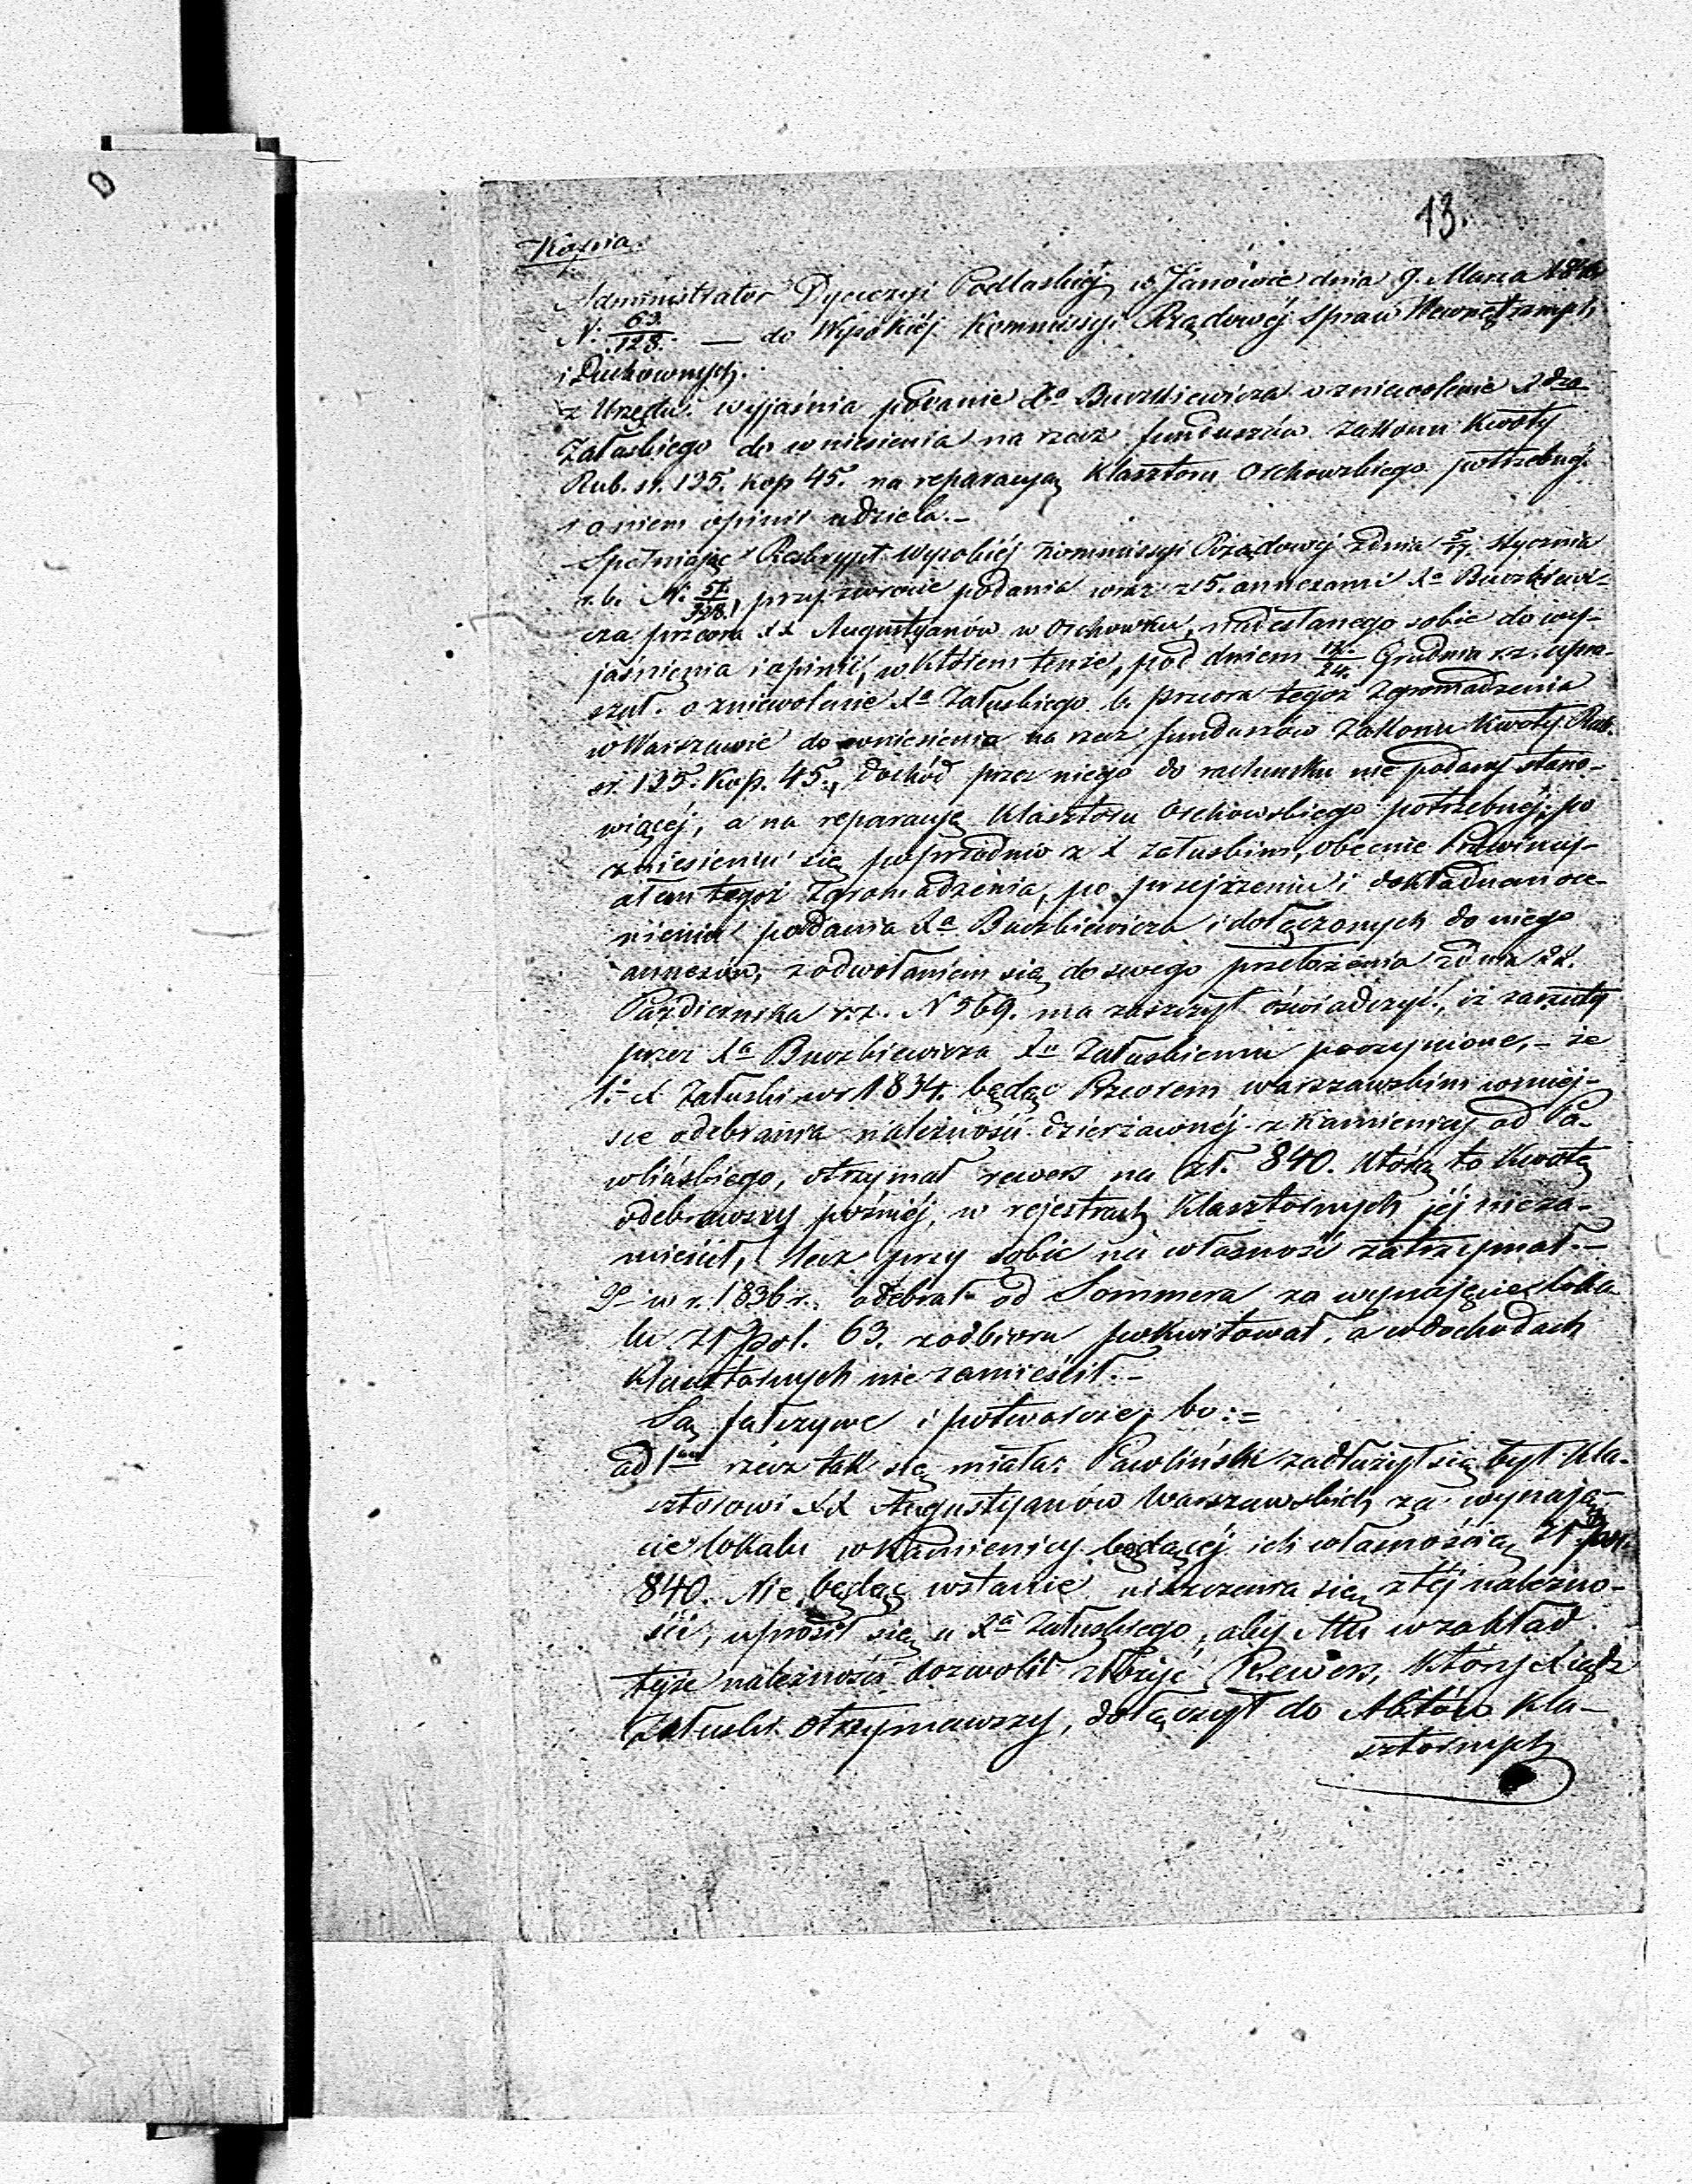 13.
Kopia.
Administrator Dyecezyi Podlaskiéj w Janowie dnia 9. Marca
N. 63/128. — do Wysokiéj Kommissyi Rządowéj Spraw Wewnętrznych
i Duchownych.
z Urzędu. wyjaśnia podanie Xa Buczkiewicza o zniewolenie Xdza
Załuskiego do wniesienia na rzecz funduszów zakonu kwoty
Rub. sr. 135. kop 45. na reparacyą Klasztoru Orchowskiego potrzebnéj.
i o niem opinii udziela.—
Spełniając Reskrypt Wysokiéj Kommissyi Rządowéj z dnia 5/17. stycznia
r. b. N. przy zwrocie podania wraz z 5. annexami Xa Buczkiewi-
cza przeora XX Augustyanów w Orchowku, nadesłanego sobie do wy-
jaśnienia i opinii, w którem tenże, pod dniem 12./24. Grudnia r. z. upra-
szał. o zniewolenie Xa Załuskiego b. przeora tegoż Zgromadzenia
w Warszawie do wniesienia na rzecz funduszów Zakonu kwoty Rub.
sr. 135. Kop. 45., dochód przez niego do rachunku nie podany stano-
wiącéj, a na reparacyę Klasztoru Orchowskiego potrzebnéj; po
zniesieniu się poprzednio z X Załuskim, obecnie Prowincy-
ałem tegoż Zgromadzenia, po przejrzeniu i dokładnem oce-
nieniu podania Xa Buczkiewicza i dołączonych do niego
annexów, z odwołaniem się do swego przełożenia z dnia 22.
Października r. z. N 569. ma zaszczyt oświadczyć, iż zarzuty
przez Xa Buczkiewicza Xu Załuskiemu poczynione,— że
1.– X Załuski w r 1834. będąc Przeorem warszawskim w miéj-
sce odebrania należności dzierżawnéj z Kamienicy od Pa-
wlińskiego, otrzymał rewers na zł. 840. którą to kwotę
odebrawszy późniéj, w rejestrach Klasztornych jéj nie za-
mieścił, lecz przy sobie na własność zatrzymał.—
2– w r. 1836 r. odebrał od Sommera za wynajęcie loka-
lu zł pol. 63. z odbioru pokwitował, a w dochodach
klasztornych nie zamieścił.—
Są fałszywe i potwarcze, bo:=
ad 1um rzecz tak się miała: Pawliński zadłużył się był kla-
sztorowi XX Augustyanów Warszawskich za wynaję-
cie lokalu w kamienicy będącéj ich własnością, zł pol.
840. Nie będąc wstanie uiszczenia się z téj należno-
ści, uprosił się u Xa Załuskiego, aby Mu w zakład
téjże należności dozwolił złożyć Rewers, który Xiądz
Załuski otrzymawszy, dołączył do Aktów Kla-
sztornych